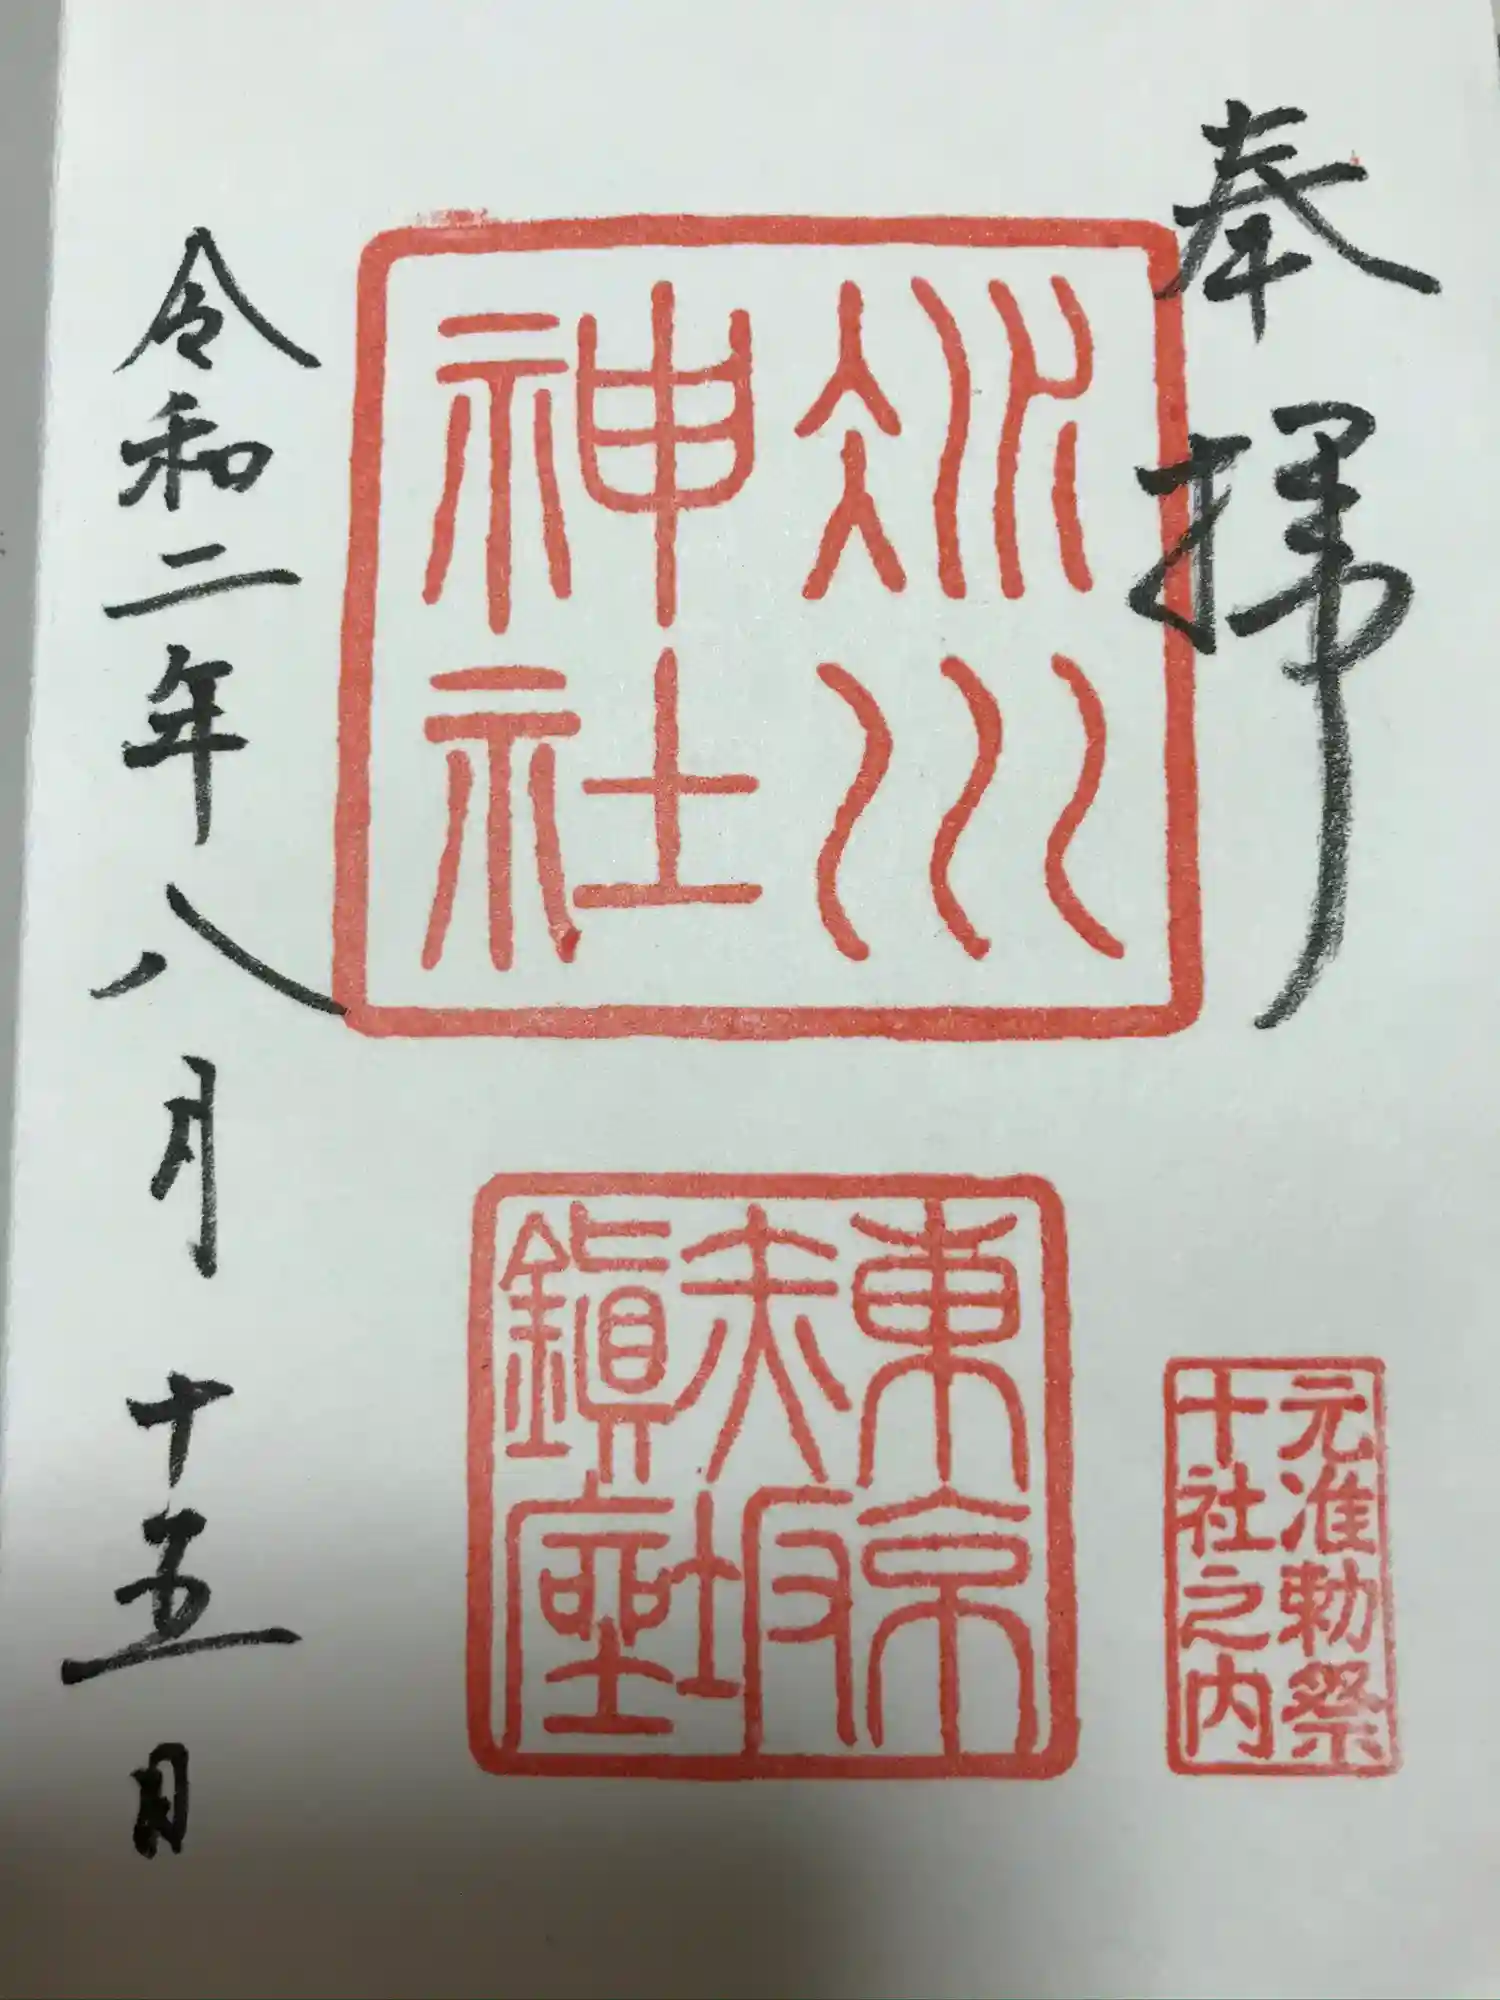 奉拝
氷川
神社
東京
赤坂
鎮座
元准勅祭
十社之内
令和二年八月十五日